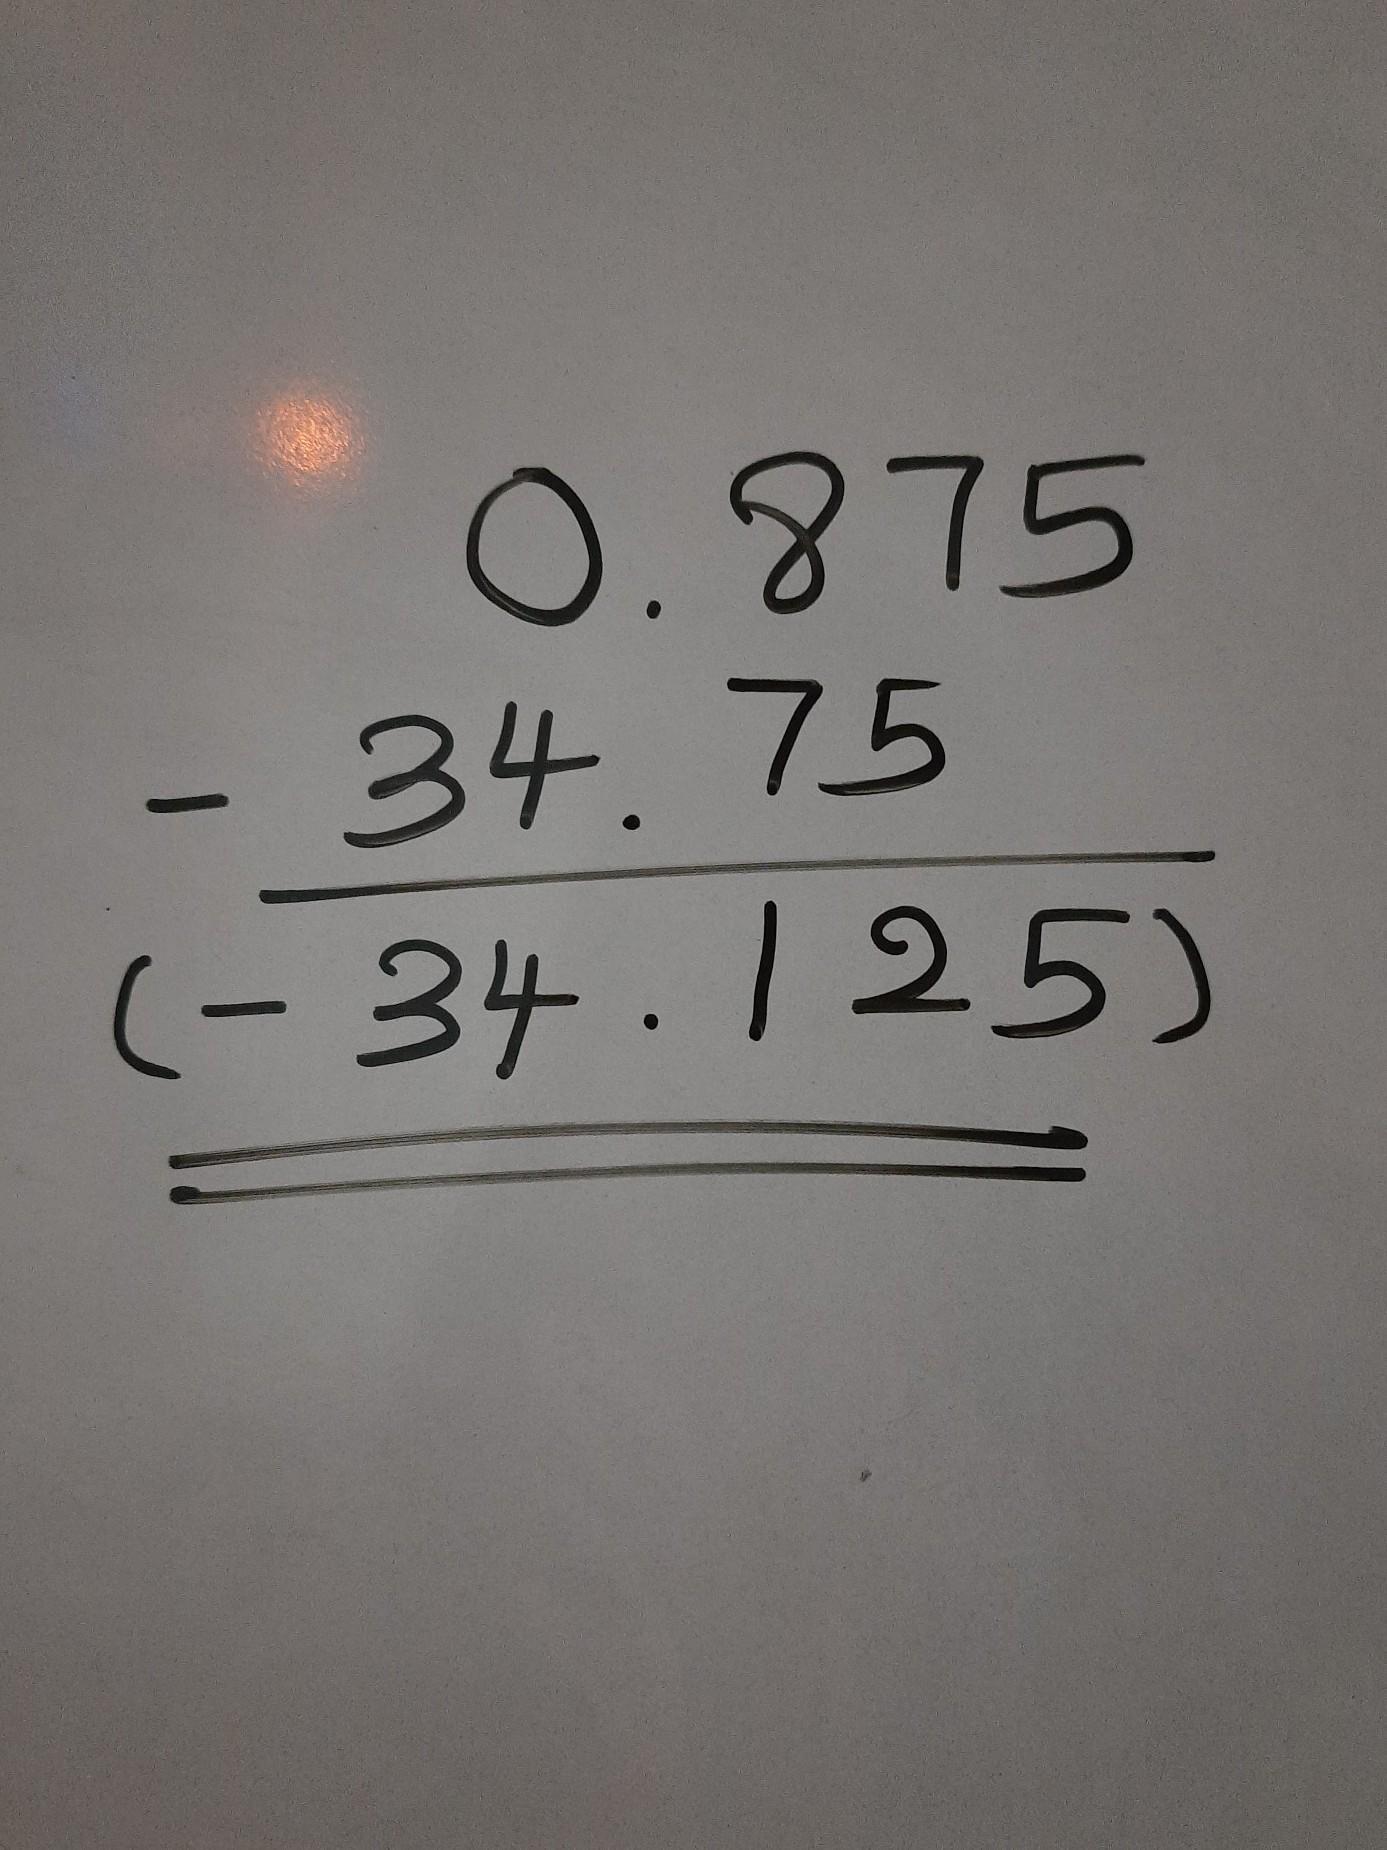 0.875
- 34.75
(- 34.125)